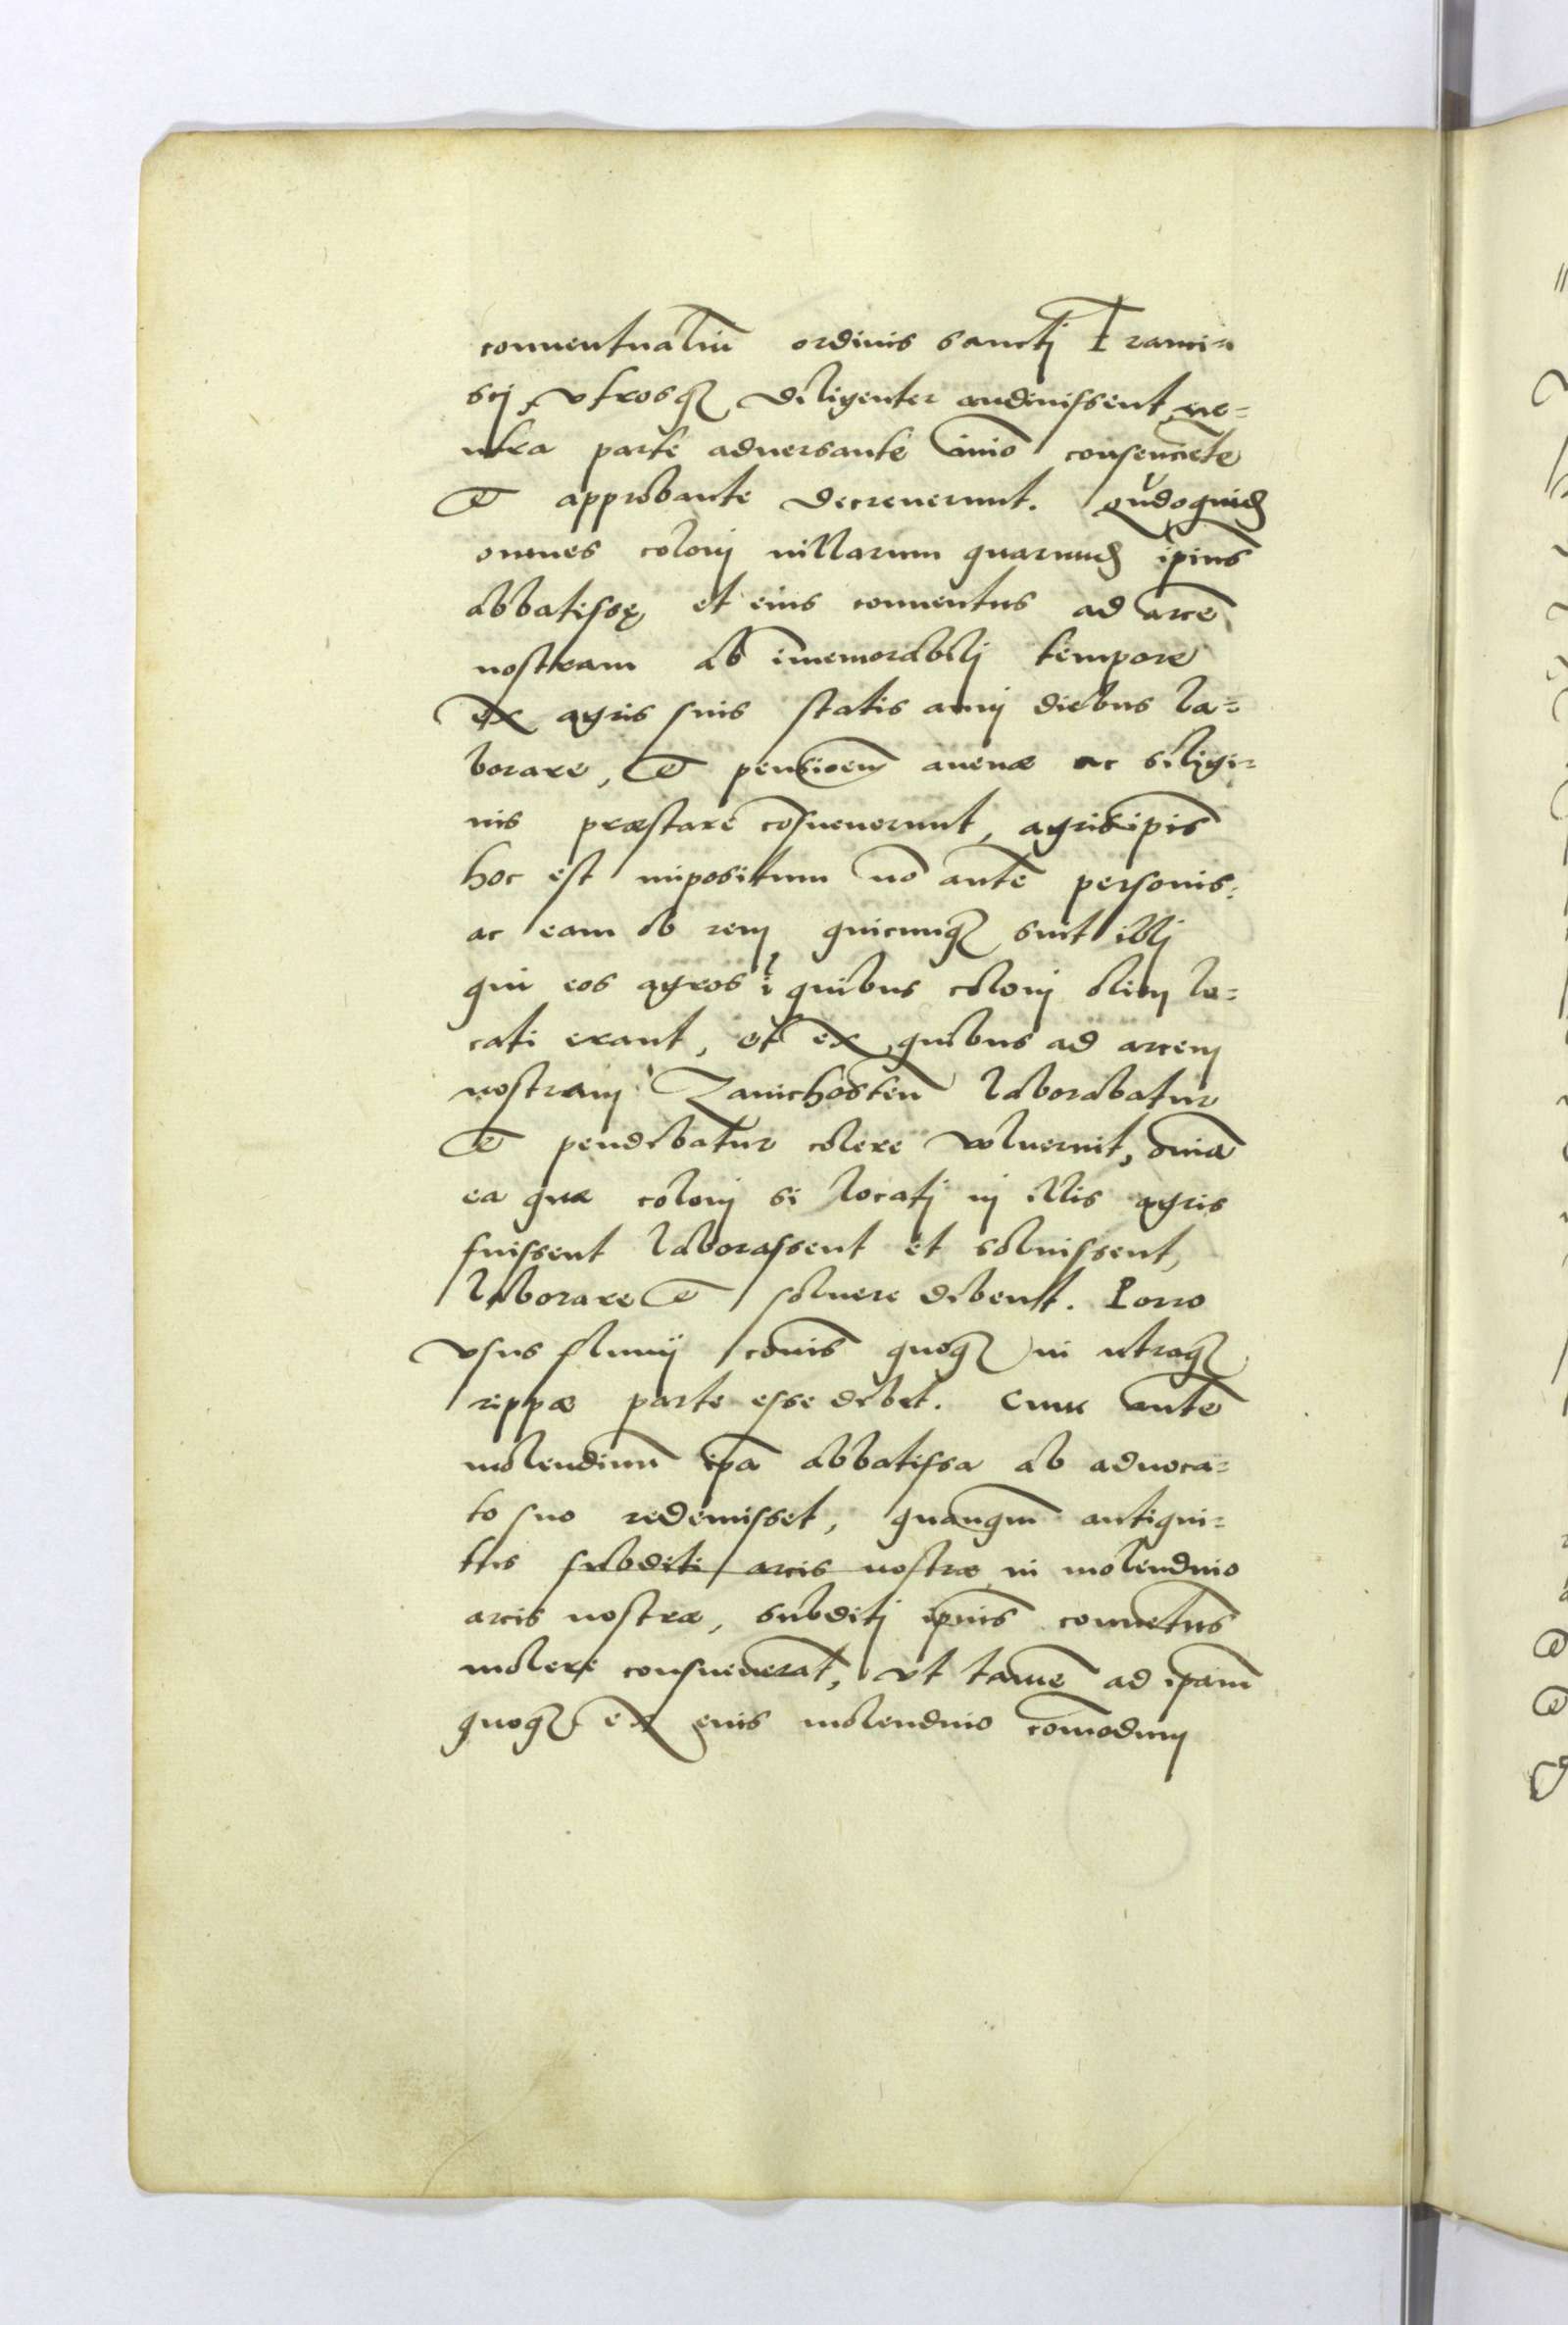 conuentualiū ordinis sanctj Franci=
scj, vtrosq₃ diligenter audiuissent, ne=
utra parte aduersante im̄o consenciēte
et approbante decreuerunt. Qn̄doquidē
omnes colonj uillarum quarundā ip̄ius
abbatissę et eius conuentus ad arcē
nostram ab im̄emorabilj tempore
ex agris suis statis annj diebus la=
borare, et pensioem auenæ ac siligi=
nis præstare cōsueuerunt, agris ip̄is
hoc est impositum nō autē personis:
ac eam ob rem quicunq₃ sint illj
qui eos agros ī quibus colonj olim lo=
cati erant, et ex quibus ad arcem
nostram Zanichosten laborabatur
et pendebatur colere voluerint, oīa
ea quæ colonj si locatj in illis agris
fuissent laborassent et soluissent,
laborare et soluere debent. Porro
vsus fluuij cōuis quoq₃ in utraq₃
rippæ parte esse debet. Cum autē
molendinū ip̄a abbatissa ab aduoca=
to suo redemisset, quanquā antiqui=
tus subditi arcis nostræ in molendino
arcis nostræ, subditj ip̄ius conuētus
molere consueuerāt, vt tamē ad ip̄am
quoq₃ ex eius molendino cōmodum